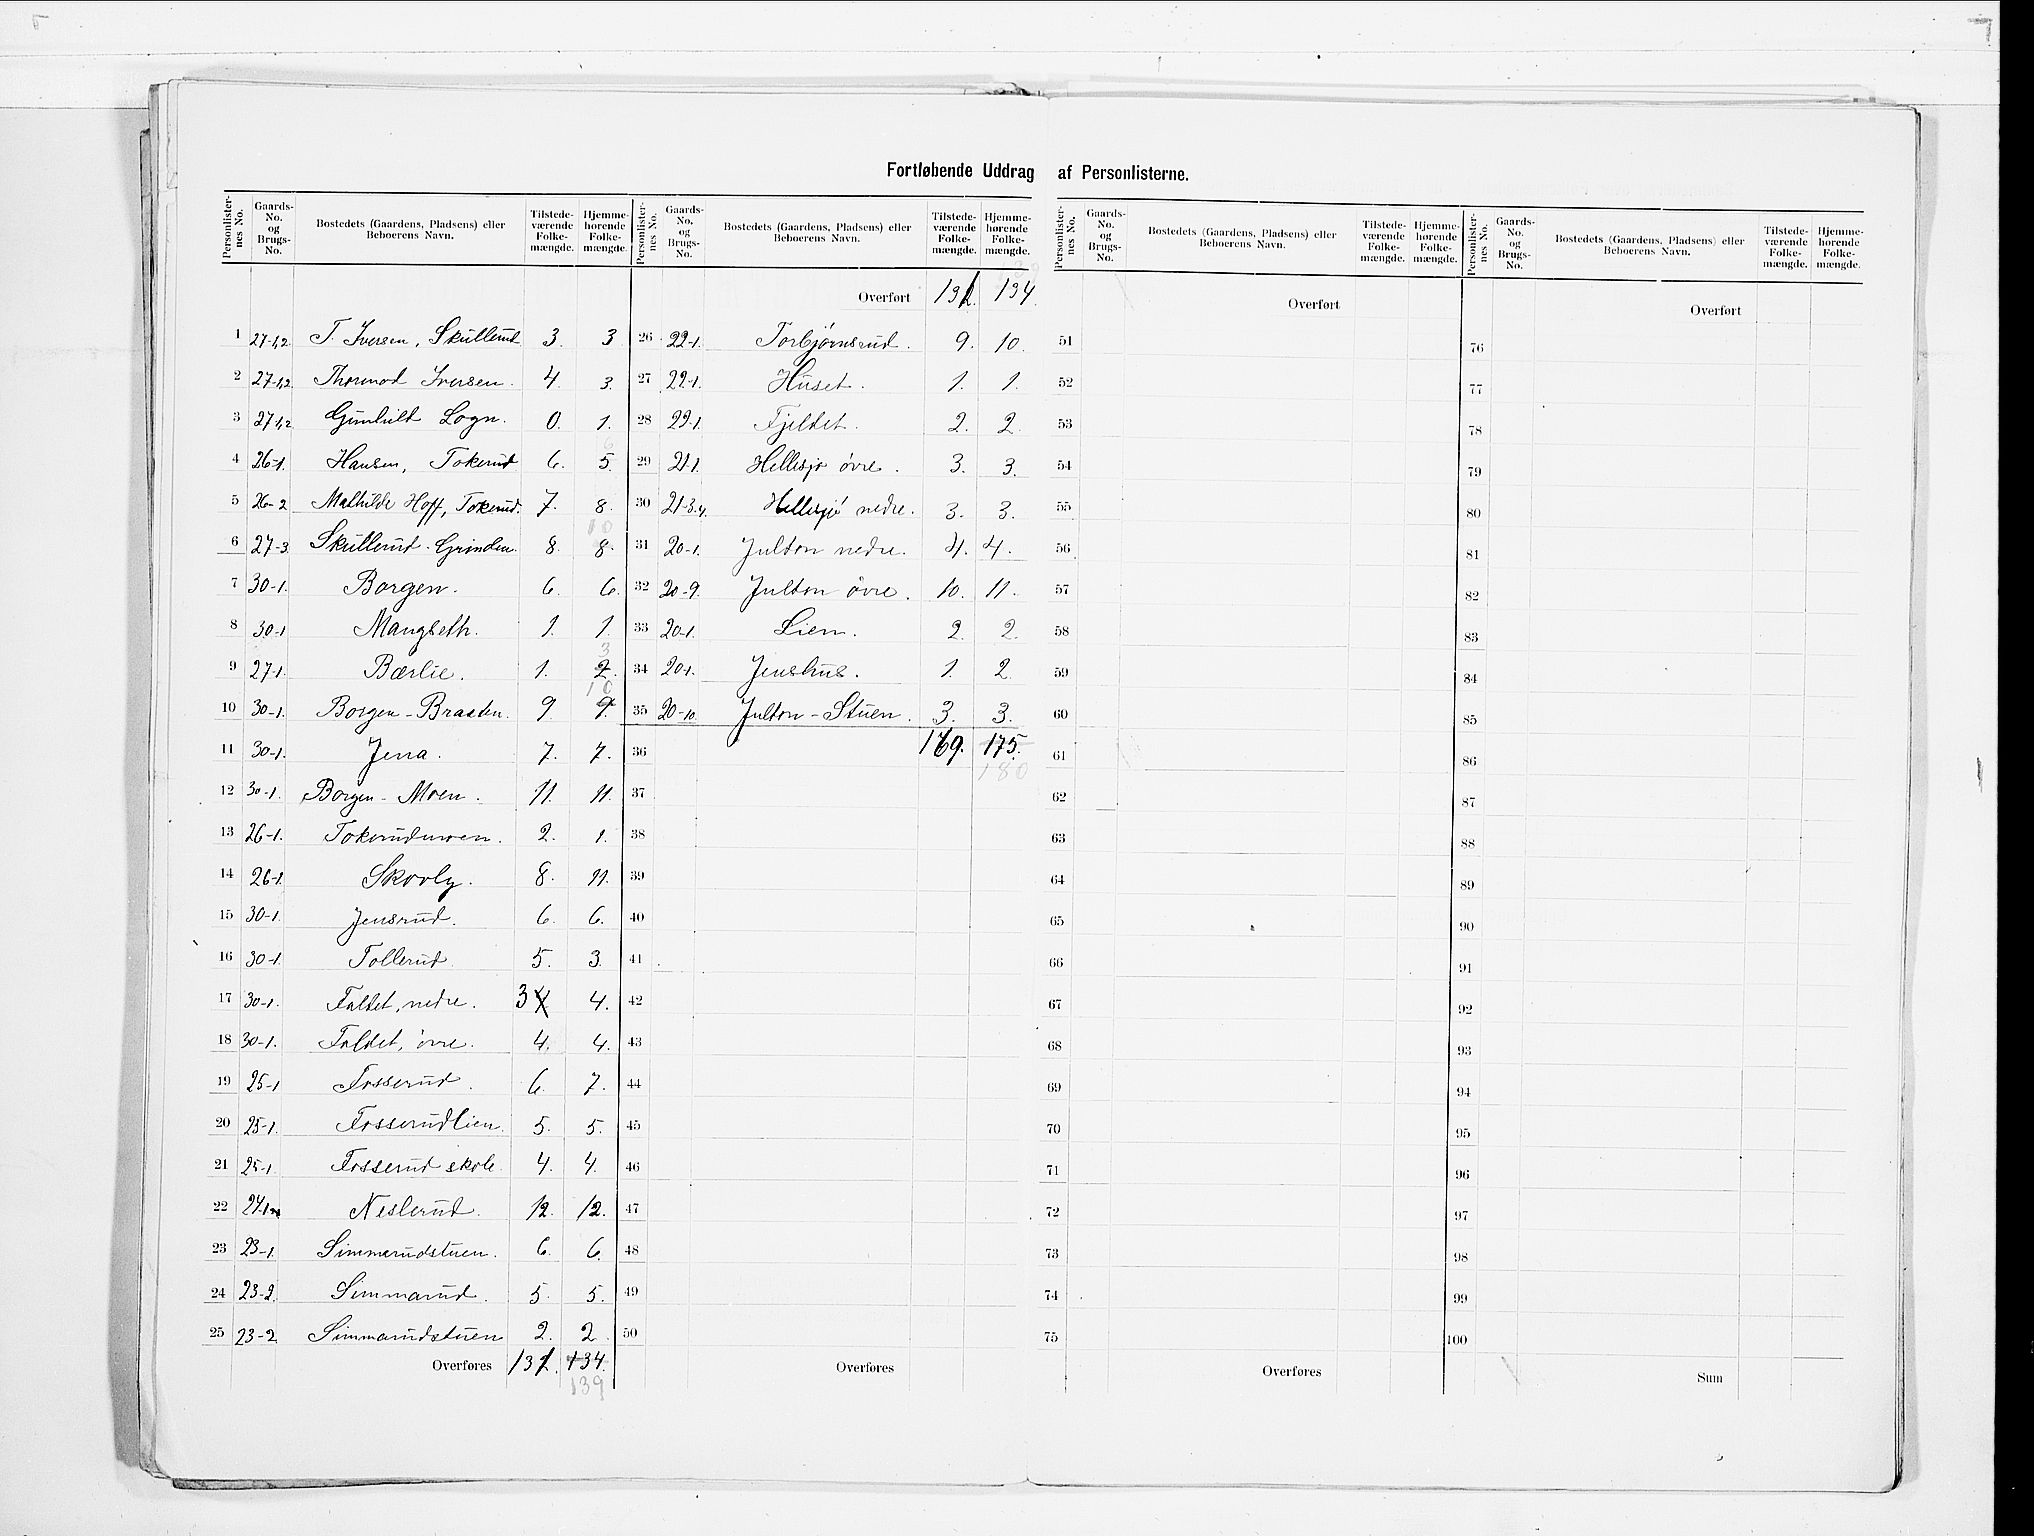 Fortløbende Uddrag af Personlisterne.
Personlisternes No. Gaards-No. og Brugs-No. Bostedets (Gaardens, Pladsens) eller Beboerens Navn. Tilstedeværende Folkemængde. Hjemmehørende Folkemængde.
1 27-1,2 T. Iversen, Skullerud 3. 3
2 27-1,2 Thormod Iversen. 4. 3.
3 27-1,2 Gunhild Logn. 0. 1.
4 26-1. Hansen, Tokerud 6. 5. 6
5 26-2 Mathilde Hoff, Tokerud. 7. 8.
6 27-3 Skullerud-Grinden. 8. 8. 10
7 30-1. Borgen. 6. 6.
8 30-1 Mangseth. 1. 1.
9 27-1. Bærlie. 1. 2. 3
10 30-1. Borgen-Braaten. 9. 9. 10
11 30-1. Jena. 7. 7.
12 30-1. Borgen-Moen. 11. 11.
13 26-1. Tokerudmoen. 2. 1.
14 26-1. Skovly. 8. 11.
15 30-1. Jensrud. 6. 6.
16 30-1. Tollerud. 5. 3.
17 30-1. Faldet, nedre. 3 4 4.
18 30-1. Faldet, øvre. 4. 4.
19 25-1 Fosserud. 6. 7.
20 25-1. Fosserudlien. 5. 5.
21 25-1. Fosserud skole. 4. 4.
22 24-1 Neslerud. 12. 12.
23 23-1. Simmarudstuen. 6. 6.
24 23-2. Simmarud. 5. 5.
25 23-2. Simmarudstuen 2. 2.
Overføres 131. 134.
139
Personlisternes No. Gaards-No. og Brugs-No. Bostedets (Gaardens, Pladsens) eller Beboerens Navn. Tilstedeværende Folkemængde. Hjemmehørende Folkemængde.
139
Overført 131. 134.
26 22-1. Torbjørnsrud. 9. 10.
27 22-1. Huset. 1. 1.
28 22-1. Fjeldet. 2. 2.
29 21-1. Hellesjø øvre. 3. 3.
30 21-3.4. Hellesjø nedre. 3. 3.
31 20-1. Julton nedre. 4. 4.
32 20-9. Julton øvre. 10. 11.
33 20-1. Lien. 2. 2.
34 20-1. Jenshus. 1. 2.
35 20-10. Julton-Stuen. 3. 3.
36 169. 175.
180
37
38
39
40
41
42
43
44
45
46
47
48
49
50
Overføres
Personlisternes No. Gaards-No. og Brugs-No. Bostedets (Gaardens, Pladsens) eller Beboerens Navn. Tilstedeværende Folkemængde. Hjemmehørende Folkemængde.
Overført
51
52
53
54
55
56
57
58
59
60
61
62
63
64
65
66
67
68
69
70
71
72
73
74
75
Overføres
Personlisternes No. Gaards-No. og Brugs-No. Bostedets (Gaardens, Pladsens) eller Beboerens Navn. Tilstedeværende Folkemængde. Hjemmehørende Folkemængde.
Overført
76
77
78
79
80
81
82
83
84
85
86
87
88
89
90
91
92
93
94
95
96
97
98
99
100
Sum